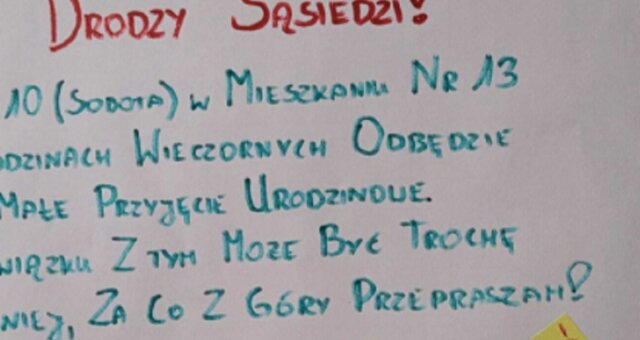 DRODZY SĄSIEDZI!
10 (SOBOTA) W MIESZKANIU NR 13
ODZINACH WIECZORNYCH ODBĘDZIE
MAŁE PRZYJĘCIE URODZINOWE.
WIĄZKU Z TYM MOŻE BYĆ TROCHĘ
NIEJ, ZA CO Z GÓRY PRZEPRASZAM!